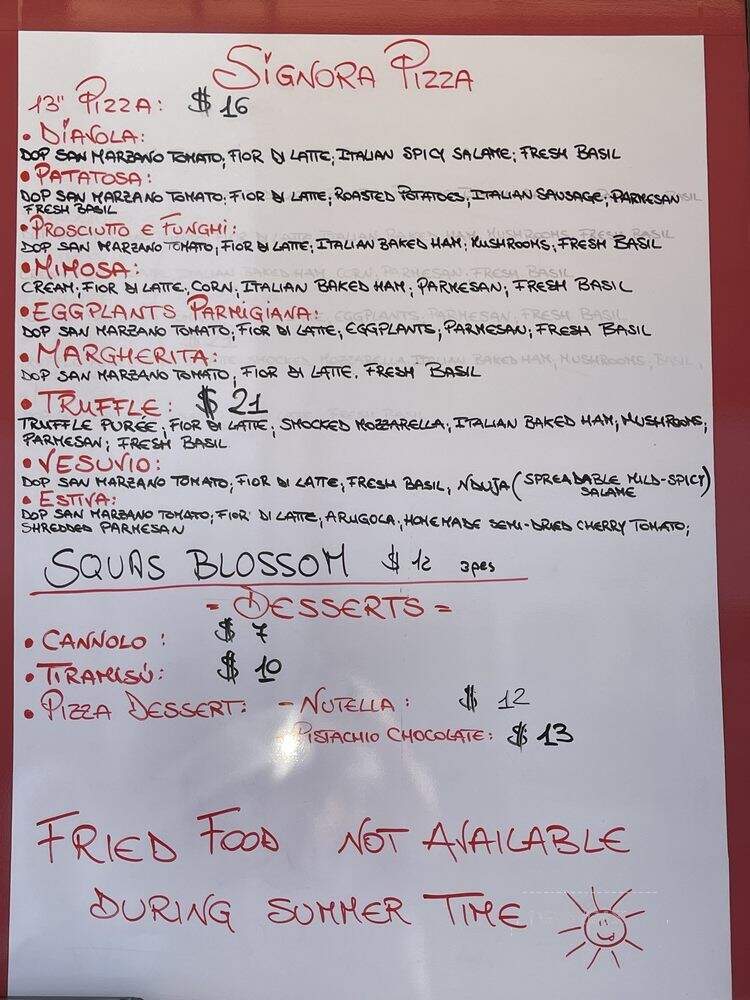 SIGNORA PIZZA
13" PIZZA: $ 16
• DIAVOLA:
DOP SAN MARZANO TOMATO; FIOR DI LATTE; ITALIAN SPICY SALAME; FRESH BASIL
• PATATOSA:
DOP SAN MARZANO TOMATO; FIOR DI LATTE; ROASTED POTATOES; ITALIAN SAUSAGE; PARMESAN
FRESH BASIL
• PROSCIUTTO E FUNGHI:
DOP SAN MARZANO TOMATO; FIOR DI LATTE; ITALIAN BAKED HAM; MUSHROOMS; FRESH BASIL
• MIMOSA:
CREAM; FIOR DI LATTE; CORN; ITALIAN BAKED HAM; PARMESAN; FRESH BASIL
• EGGPLANTS PARMIGIANA:
DOP SAN MARZANO TOMATO; FIOR DI LATTE; EGGPLANTS; PARMESAN; FRESH BASIL
• MARGHERITA:
DOP SAN MARZANO TOMATO; FIOR DI LATTE. FRESH BASIL
• TRUFFLE: $ 21
TRUFFLE PURÉE; FIOR DI LATTE; SMOCKED MOZZARELLA; ITALIAN BAKED HAM; MUSHROOMS;
PARMESAN; FRESH BASIL
• VESUVIO:
DOP SAN MARZANO TOMATO; FIOR DI LATTE; FRESH BASIL; NDUJA (SPREADABLE MILD-SPICY)
SALAME
• ESTIVA:
DOP SAN MARZANO TOMATO; FIOR DI LATTE; ARUGOLA; HOMEMADE SEMI-DRIED CHERRY TOMATO;
SHREDDED PARMESAN
SQUAS BLOSSOM $ 12 3pcs
- DESSERTS =
• CANNOLO: $ 7
• TIRAMISÚ: $ 10
• PIZZA DESSERT: - NUTELLA: $ 12
- PISTACHIO CHOCOLATE: $ 13
FRIED FOOD NOT AVAILABLE
DURING SUMMER TIME